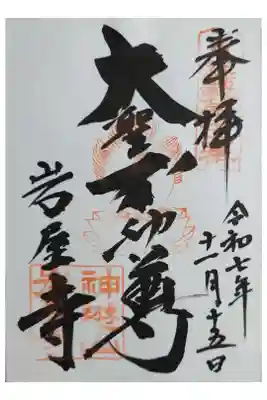 奉拝
令和七年
十一月十五日
大聖不動尊
岩屋寺